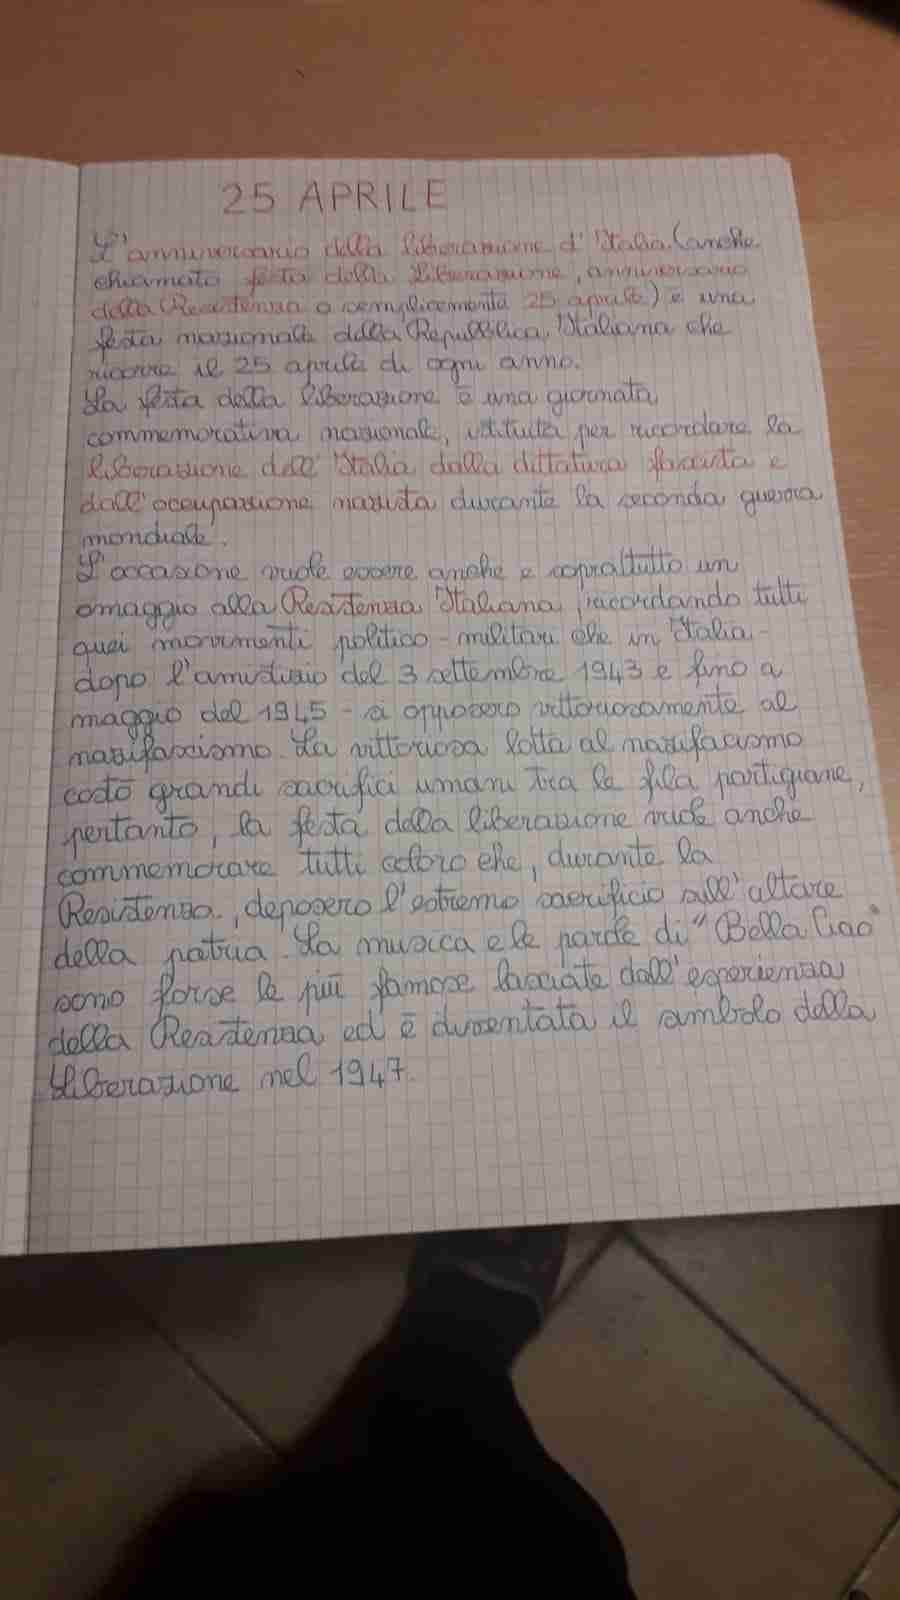 25 APRILE
L'anniversario della liberazione d'Italia (anche
chiamato festa della Liberazione, anniversario
della Resistenza o semplicemente 25 aprile) è una
festa nazionale della Repubblica Italiana che
ricorre il 25 aprile di ogni anno.
La festa della liberazione è una giornata
commemorativa nazionale, istituita per ricordare la
liberazione dell'Italia dalla dittatura fascista e
dall'occupazione nazista durante la seconda guerra
mondiale.
L'occasione vuole essere anche e soprattutto un
omaggio alla Resistenza Italiana, ricordando tutti
quei movimenti politico-militari che in Italia -
dopo l'armistizio del 3 settembre 1943 e fino a
maggio del 1945 - si opposero vittoriosamente al
nazifascismo. La vittoriosa lotta al nazifascismo
costò grandi sacrifici umani tra le fila partigiane,
pertanto, la festa della liberazione vuole anche
commemorare tutti coloro che, durante la
Resistenza, deposero l'estremo sacrificio sull'altare
della patria. La musica e le parole di "Bella Ciao"
sono forse le più famose lasciate dall'esperienza
della Resistenza ed è diventata il simbolo della
Liberazione nel 1947.